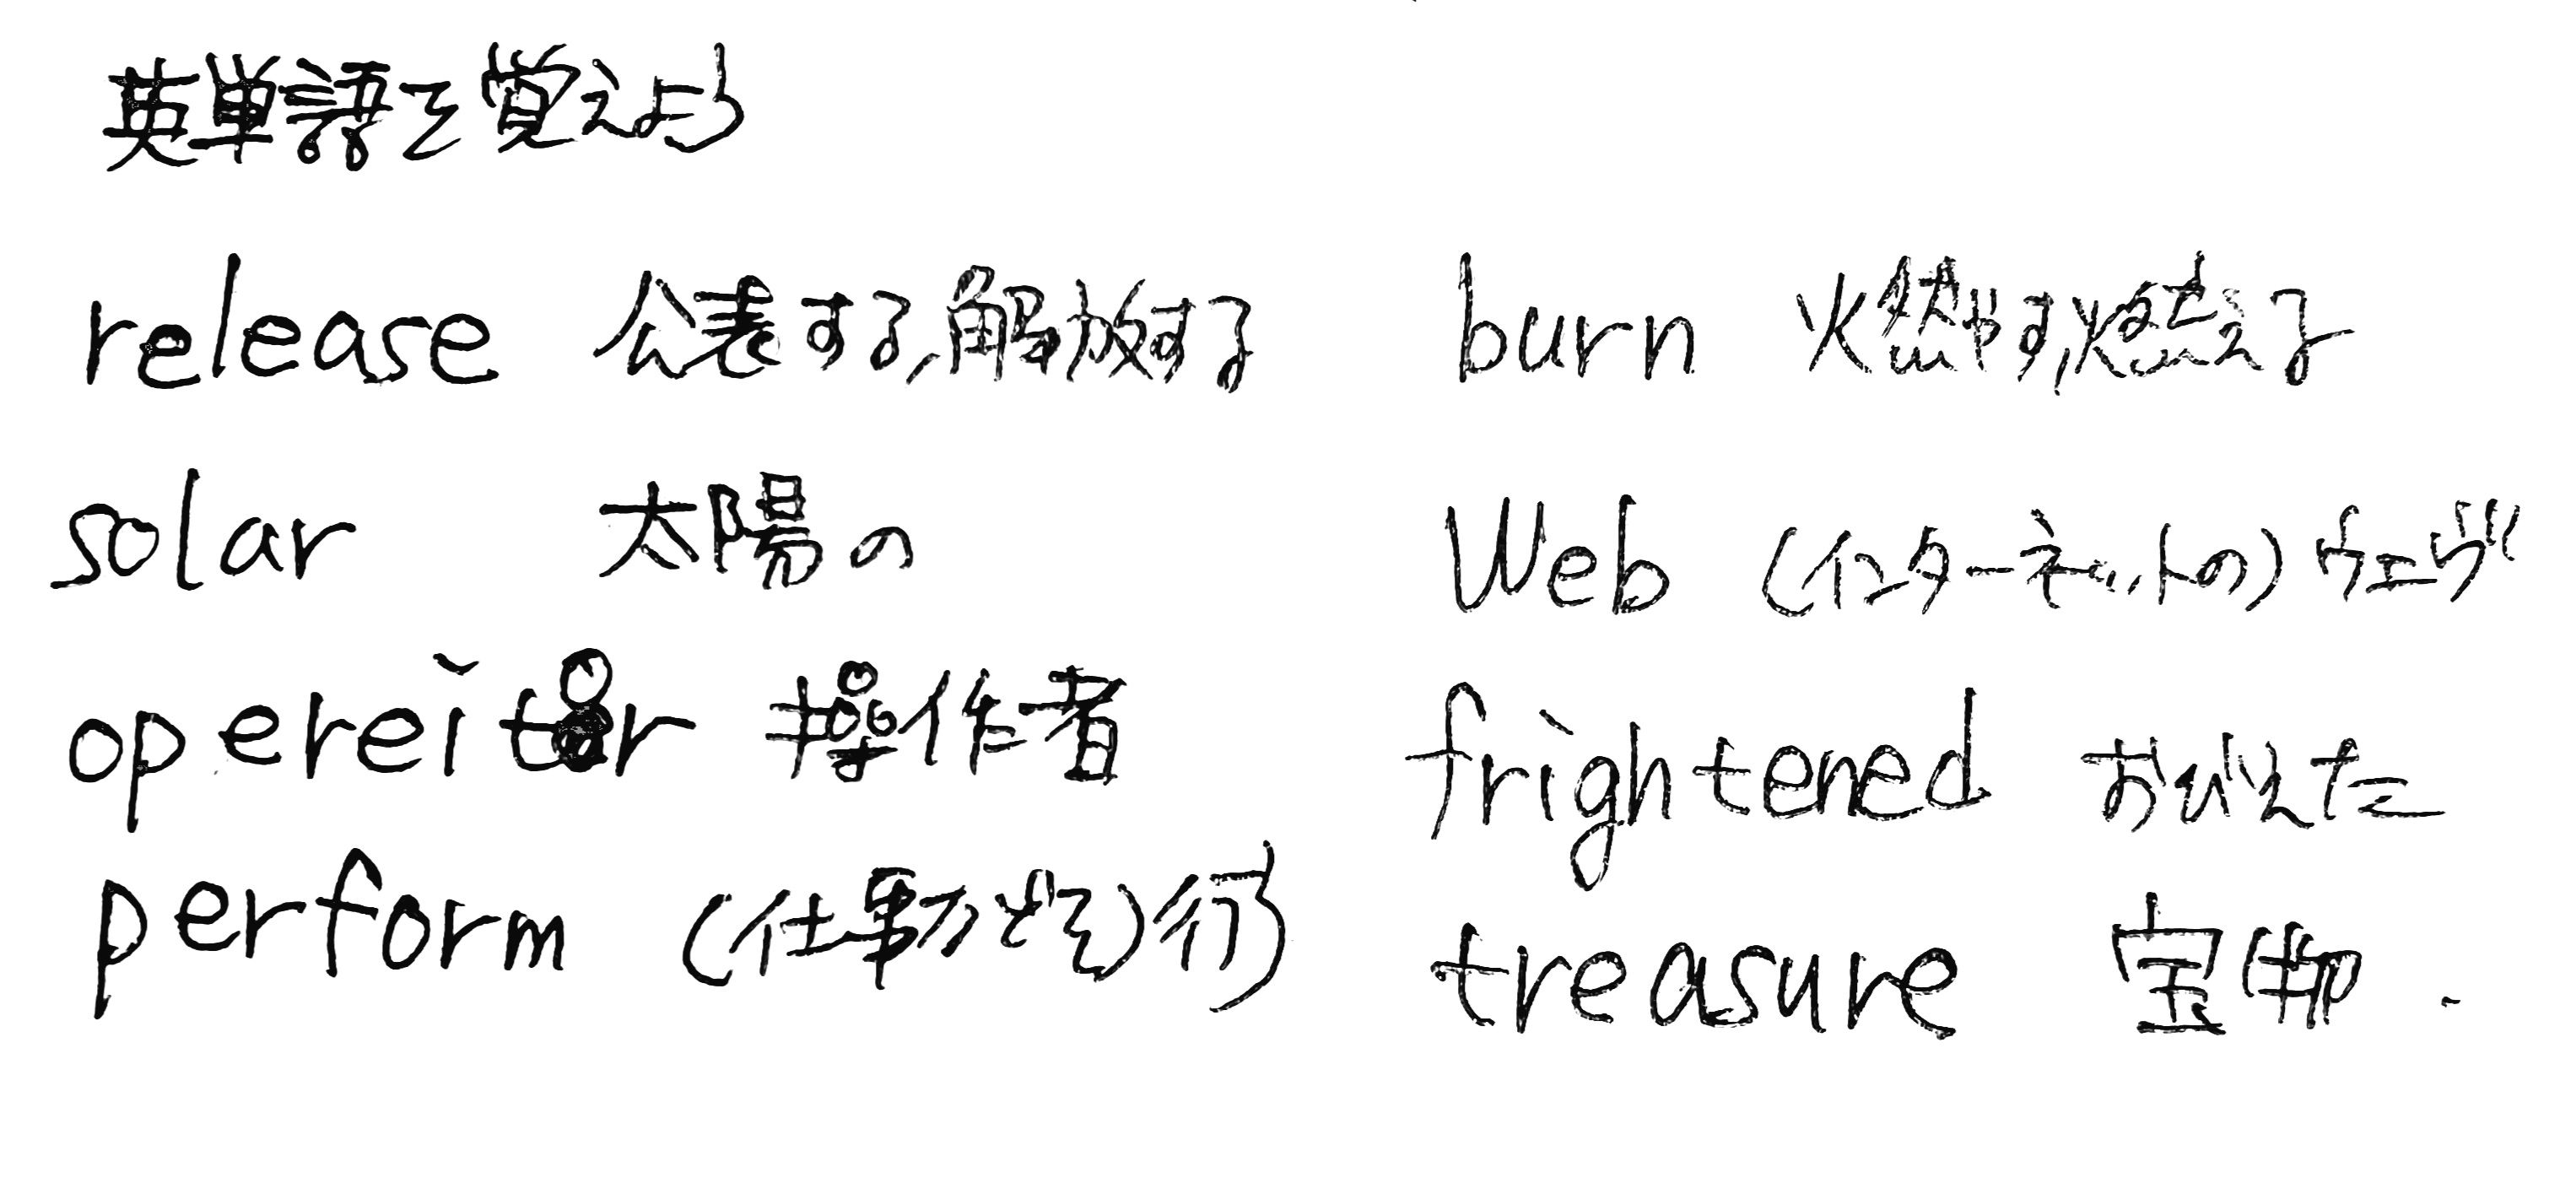 英単語を覚えよう
release 公表する,解放する
solar 太陽の
opereitor 操作者
perform (仕事などを)行う
burn 燃やす,燃える
Web (インターネットの)ウェヴ
frightened おびえた
treasure 宝物